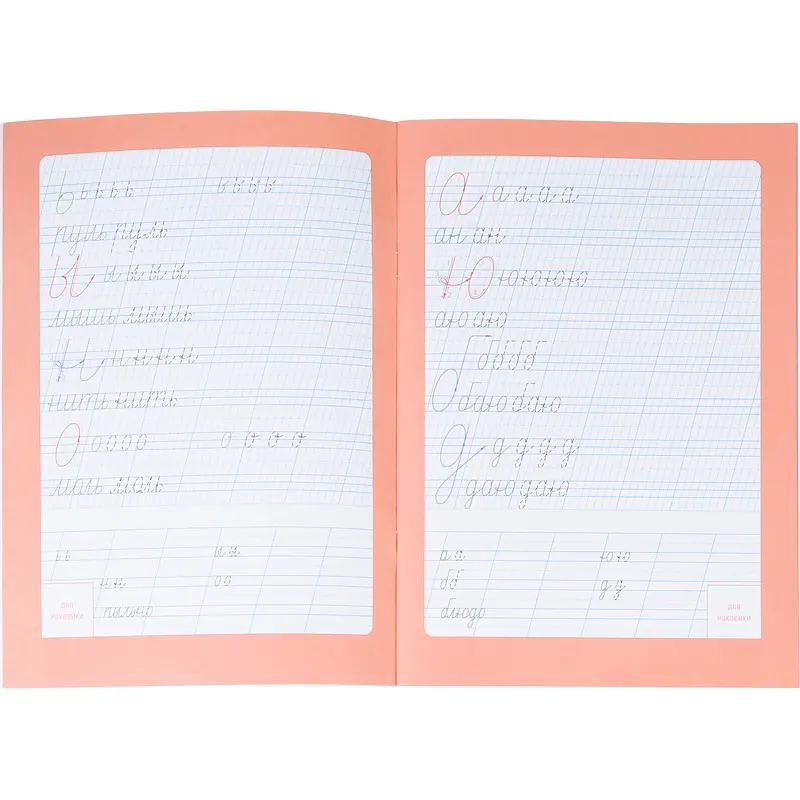 ь ь ь ь ь ь ь ь ь
пуль руль
ы ы ы ы ы
мышь мышь
н н н н н
нить нить
о о о о о о о о о
моль моль
ь ь ы ы
н н о о
для наклейки
пыльно
а а а а а
ан ан
ю ю ю ю ю
аю аю
б б б б б
баю баю
д д д д д
даю даю
а а ю ю
б б д д
блюдо
для наклейки